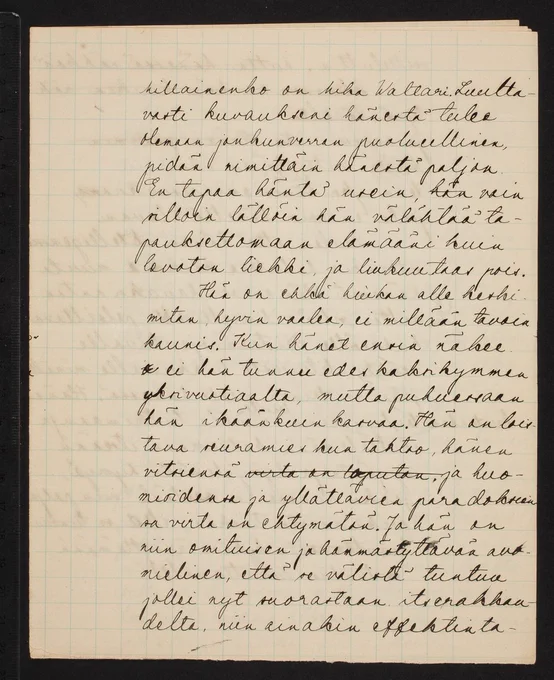 millainenko on Mika Waltari. Luulta-
vasti kuvaukseni hänestä tulee
olemaan jonkunverran puolueellinen,
pidän nimittäin hänestä paljon.
En tapaa häntä usein, hän vain
silloin tällöin hän välähtää ta-
pauksettomaan elämääni kuin
levoton liekki, ja liukuu taas pois.
Hän on ehkä hiukan alle keski
mitan, hyvin vaalea, ei millään tavoin
kaunis. Kun hänet ensin näkee
ei hän tunnu edes kaksikymmen
yksivuotiaalta, mutta puhuessaan
hän ikäänkuin kasvaa. Hän on lois-
tava seuramies kun tahtoo, hänen
vitsiensä virta on loputon, ja huo-
mioidensa ja yllättävien paradoksien
sa virta on ehtymätön. Ja hän on
niin omituisen ja hämmästyttävän avo-
mielinen, että se välistä tuntuu
jollei nyt suorastaan itserakkau-
delta, niin ainakin effektinta-